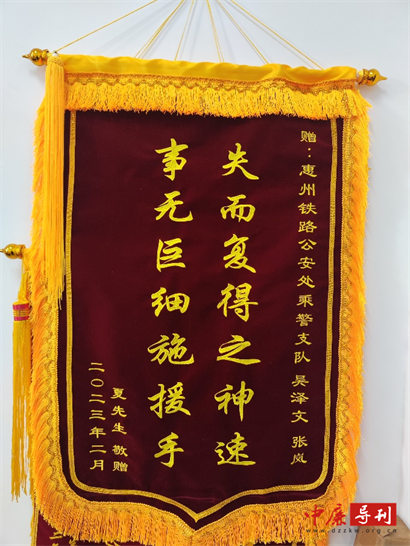 赠：惠州铁路公安处乘警支队 吴泽文 张岚
失而复得之神速
事无巨细施援手
夏先生 敬赠
二〇二三年二月
中廉导刊
www.dzzkw.org.cn